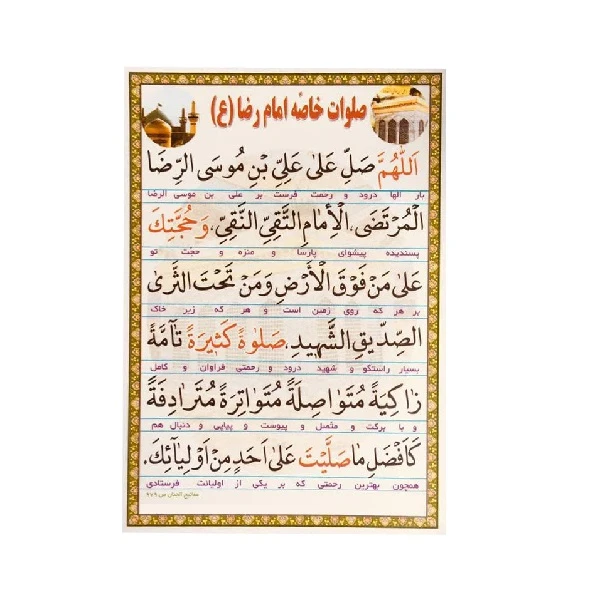 صلوات خاصّه امام رضا (ع)
اَللّٰهُمَّ صَلِّ عَلىٰ عَلِيِّ بْنِ مُوسَى الرِّضَا
بار الها درود و رحمت فرست بر علی بن موسی الرضا
الْمُرْتَضَى، الْأِمَامِ التَّقِيِّ النَّقِيِّ، وَحُجَّتِكَ
پسندیده پیشوای پارسا و منزه و حجّت تو
عَلىٰ مَنْ فَوْقَ الْأَرْضِ وَمَنْ تَحْتَ الثَّرىٰ
بر هر که روی زمین است و هر که زیر خاک
الصِّدّيقِ الشَّهيدِ، صَلوٰةً كَثيرَةً تٰآمَّةً
بسیار راستگو و شهید درود و رحمتی فراوان و کامل
زاكِيَةً مُتَوٰاصِلَةً مُتَوٰاتِرَةً مُتَرٰادِفَةً
و با برکت و متّصل و پیوست و پیاپی و دنبال هم
كَاَفْضَلِ مٰا صَلَّيْتَ عَلىٰ اَحَدٍ مِنْ اَوْلِيٰآئِكَ.
همچون بهترین رحمتی که بر یکی از اولیائت فرستادی
مفاتیح الجنان ص ۹۷۹